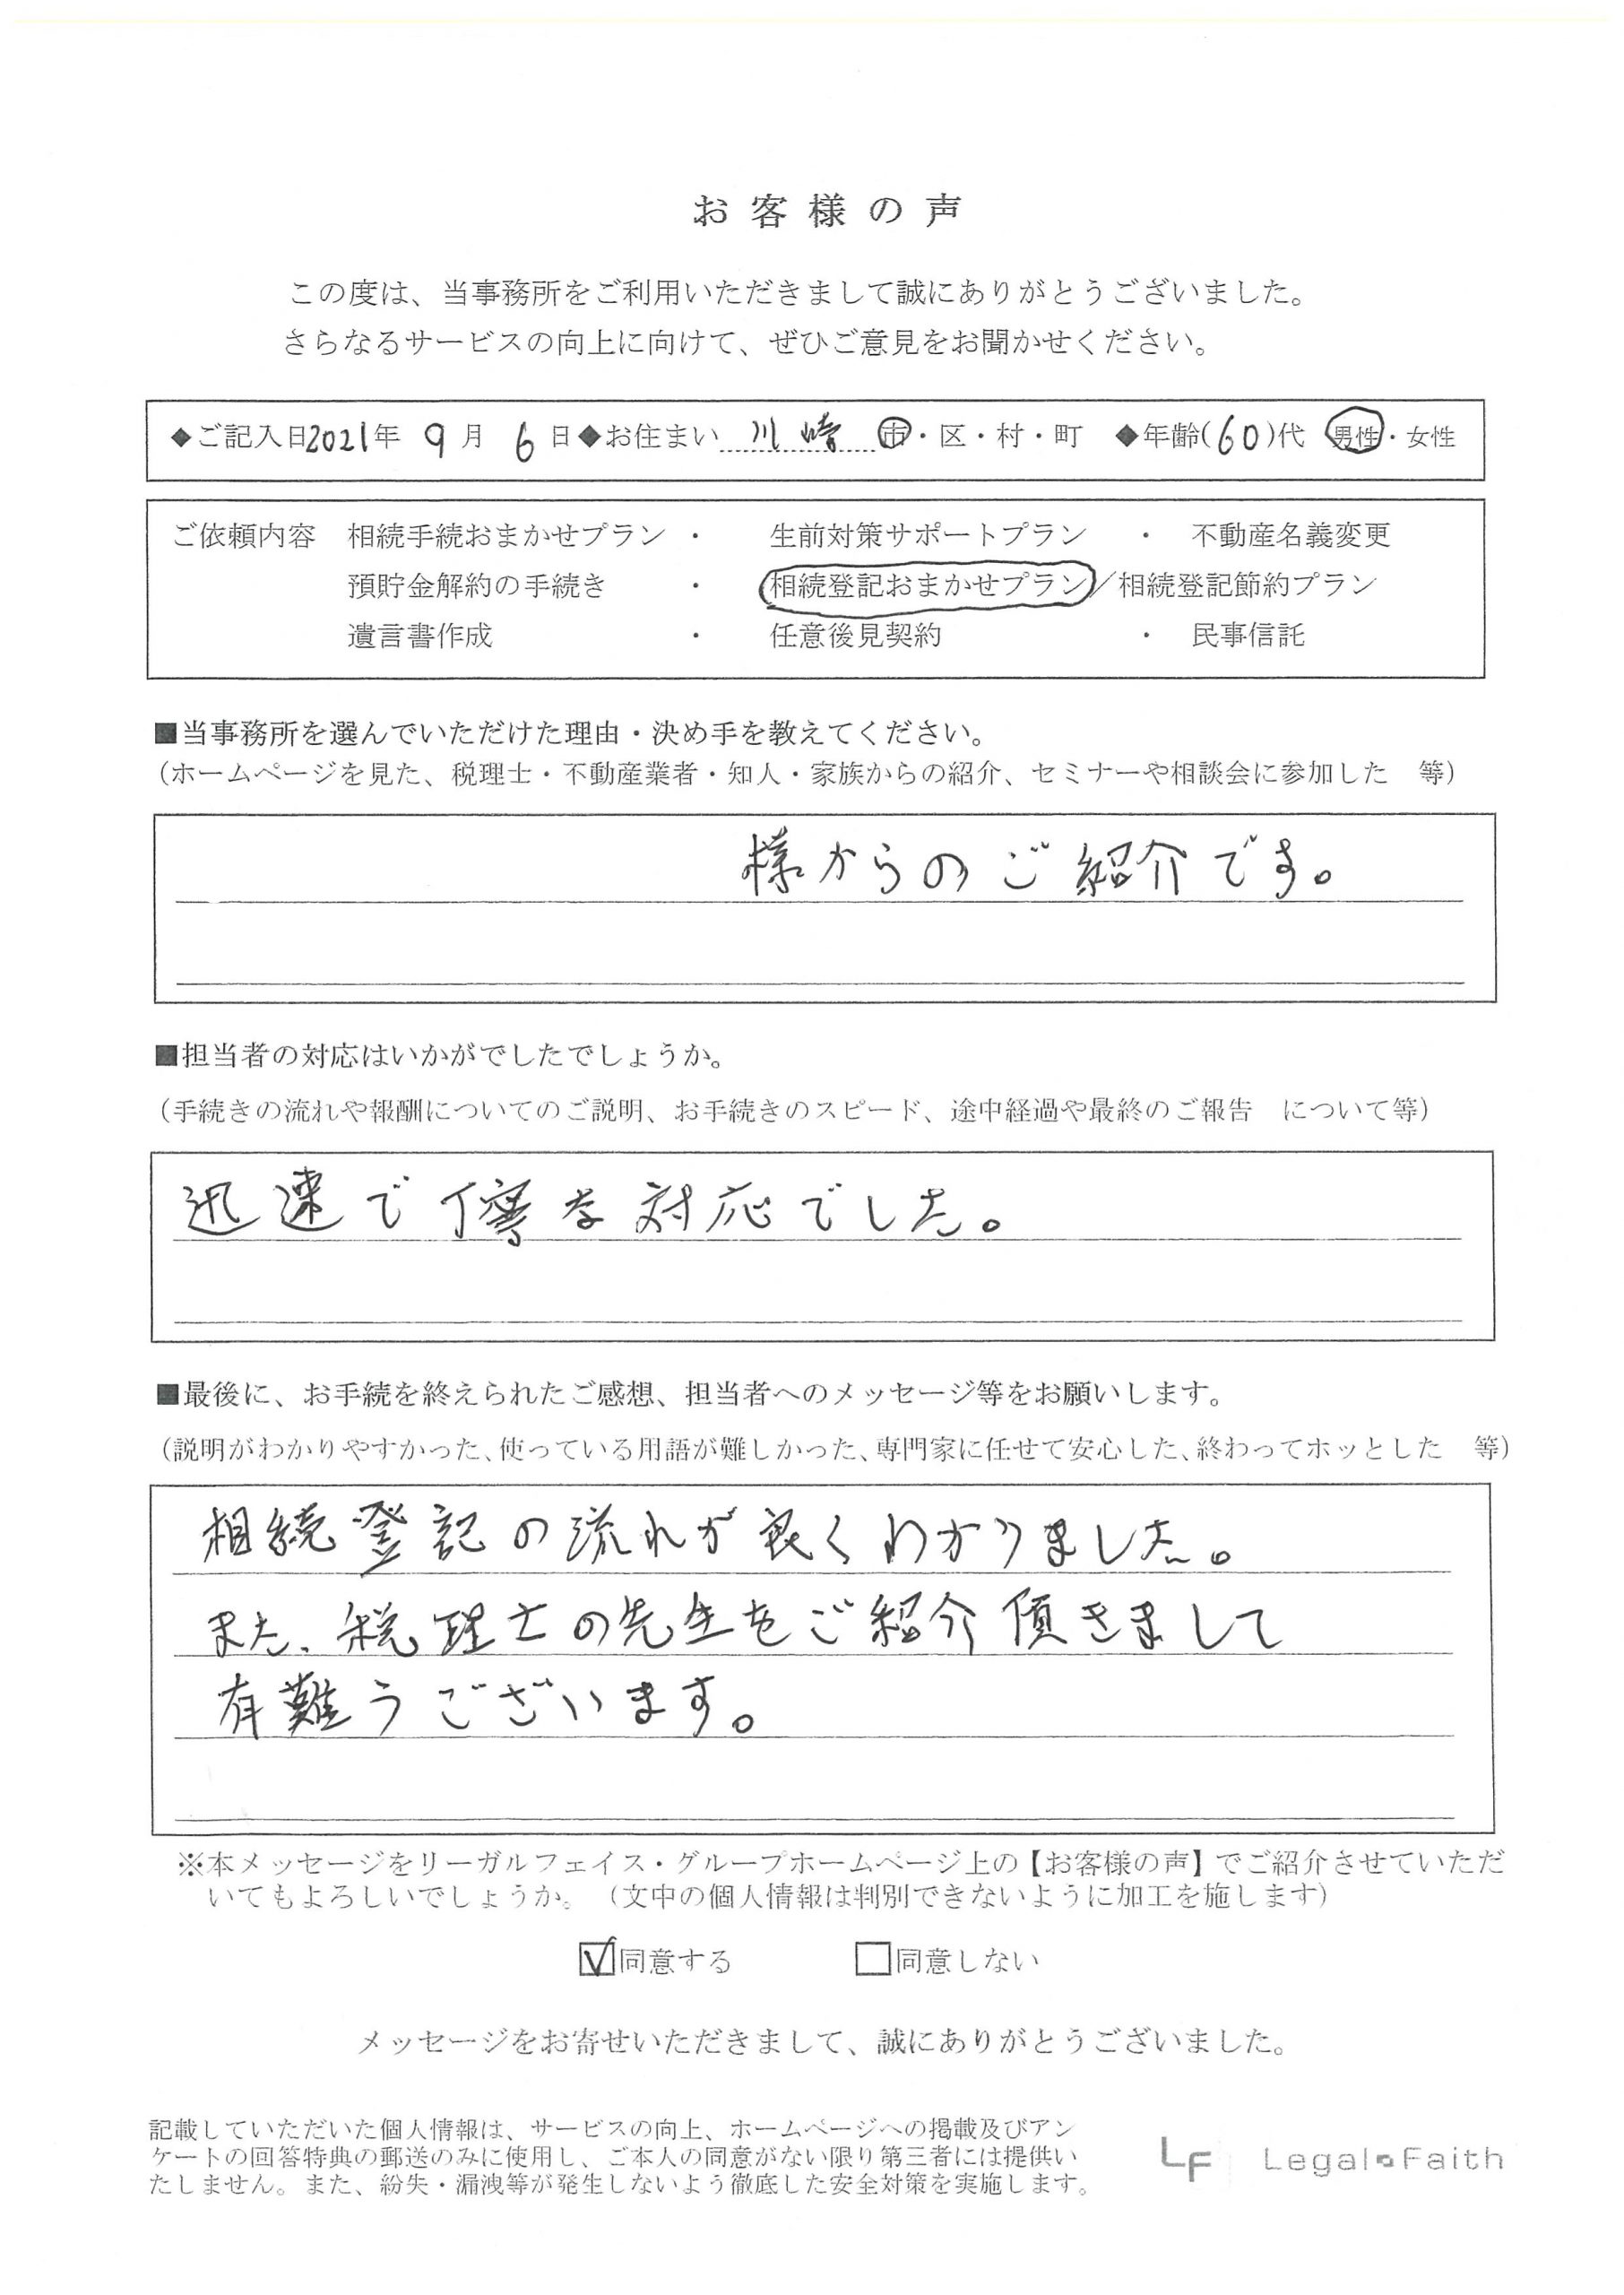 お客様の声
この度は、当事務所をご利用いただきまして誠にありがとうございました。
さらなるサービスの向上に向けて、ぜひご意見をお聞かせください。
◆ご記入日2021年 9月 6日◆お住まい 川崎 市・区・村・町 ◆年齢(60)代 男性・女性
ご依頼内容 相続手続おまかせプラン ・ 生前対策サポートプラン ・ 不動産名義変更
預貯金解約の手続き ・ 相続登記おまかせプラン/相続登記節約プラン
遺言書作成 ・ 任意後見契約 ・ 民事信託
■当事務所を選んでいただけた理由・決め手を教えてください。
(ホームページを見た、税理士・不動産業者・知人・家族からの紹介、セミナーや相談会に参加した 等)
様からのご紹介です。
■担当者の対応はいかがでしたでしょうか。
(手続きの流れや報酬についてのご説明、お手続きのスピード、途中経過や最終のご報告 について等)
迅速で丁寧な対応でした。
■最後に、お手続を終えられたご感想、担当者へのメッセージ等をお願いします。
(説明がわかりやすかった、使っている用語が難しかった、専門家に任せて安心した、終わってホッとした 等)
相続登記の流れが良くわかりました。
また、税理士の先生をご紹介頂きまして
有難うございます。
※本メッセージをリーガルフェイス・グループホームページ上の【お客様の声】でご紹介させていただ
いてもよろしいでしょうか。(文中の個人情報は判別できないように加工を施します)
☑同意する □同意しない
メッセージをお寄せいただきまして、誠にありがとうございました。
記載していただいた個人情報は、サービスの向上、ホームページへの掲載及びアン
ケートの回答特典の郵送のみに使用し、ご本人の同意がない限り第三者には提供い
たしません。また、紛失・漏洩等が発生しないよう徹底した安全対策を実施します。
LF Legal Faith